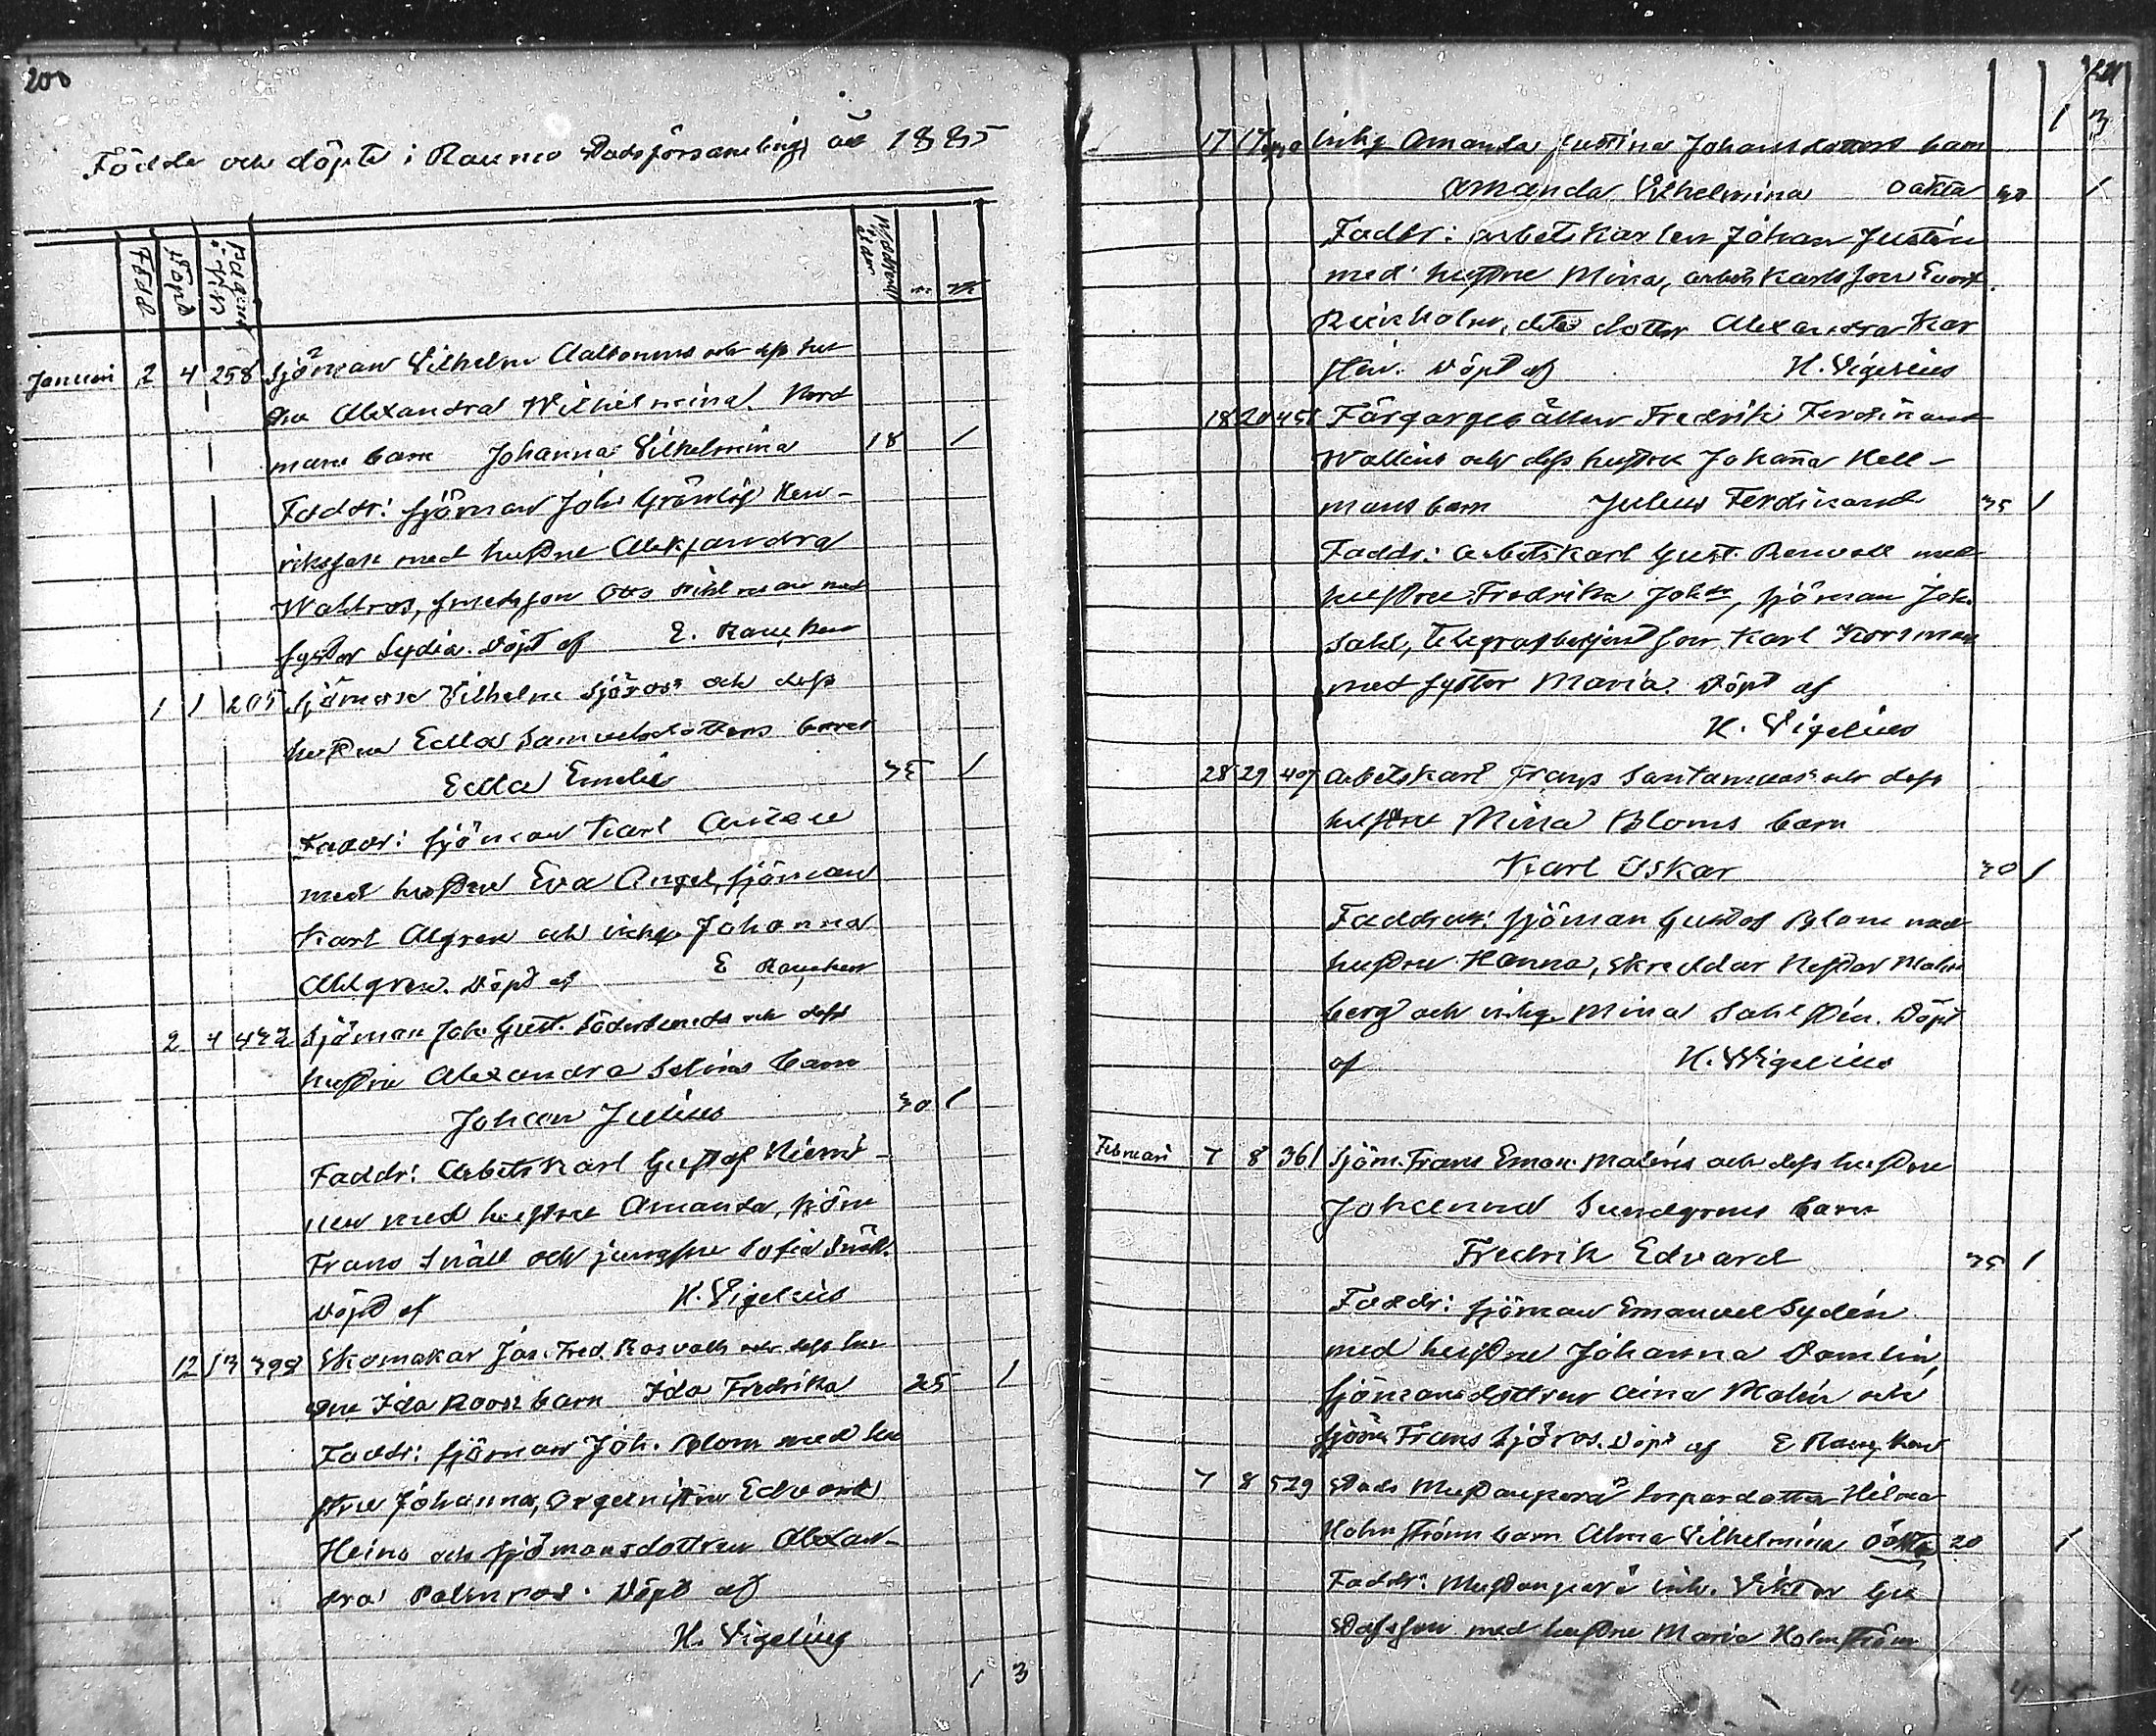 200
Födde och döpte i Raumo Stadsförsamling år 1885
Född Döpt Pagina Modrens ålder m
Januari 2 4 258 Sjöman Vilhelm Aaltonens och dess hu
stru Alexandra Wilhelmina Nord
mans barn Johanna Vilhelmina 18 1
Faddr: sjöman Joh. Grönlöf Hen-
riksson med hustru Alexandra
Wahlros, smedsson Otto med
syster Lydia. Döpt af E. Rancken
1 1 205 Sjöman Vilhelm Sjöros och dess
hustru Edla Samuelsdotters barn
Edla Emelie 35 1
Faddr: sjöman Karl
med hustru Eva Angel, sjöman
Karl Algren och inhy. Johanna
Ahlgren. Döpt af E Rancken
2 4 432 Sjöman Joh. Gust. Söderlunds och dess
hustru Alexandra Selins barn
Johan Julius 30 1
Faddr: Arbetskarl Gustaf Niemi-
nen med hustru Amanda, sjöm
Frans Snäll och jungfru Sofia Snäll.
Döpt af H. Vigelius
12 13 398 Skomakar Joh. Fred. Rosvalls och dess hu
stru Ida Roos barn Ida Fredrika 25 1
Faddr: sjöman Joh. Blom med hu
stru Johanna, Orgelnisten Edvard
Heino och sjömansdottren Alexan-
dra Palmros. Döpt af
H. Vigelius
1 3
201
1 3
17 17 inhy Amanda Justina Johansdotters barn
Amanda Vilhelmina oäkta 30 1
Faddr: arbetskarlen Johan Justén
med hustru Mina, arbetskarlsson Evert
Reinholm, dito dotter Alexandra Kar
lsten. Döpt af H. Vigelius
18 20 451 Färgargesällen Fredrik Ferdinand
Wallins och dess hustru Johanna Hell-
mans barn Julius Ferdinand 35 1
Faddr: arbetskarl Gust. Renvall med
hustru Fredrika Johtr, sjöman Joh.
Sahl, Telegrafbetjent son Karl Korsman
med syster Maria. Döpt af
H. Vigelius
28 29 407 Arbetskarl Frans Santamaas och dess
hustru Mina Bloms barn
Karl Oskar 30 1
Faddrar: sjöman Gustaf Blom med
hustru Hanna, Skreddar Nestor Malm
berg och inhy. Mina Sahlstén. Döpt
af H. Wigelius
Februari 7 8 361 Sjöm. Frans Eman. Maléns och dess hustru
Johanna Sundgrens barn
Fredrik Edvard 35 1
Faddr: sjöman Emanuel Sydén
med hustru Johanna Domlin,
sjömansdottren Aina Malén och
sjöm Frans Sjöros. Döpt af E Rancken
7 8 529 Stads torpardotter Hilma
Holmströms barn Alma Vilhelmina oäkta 20 1
Faddr: inh. Viktor Gu
stafsson med hustru Maria Holmström